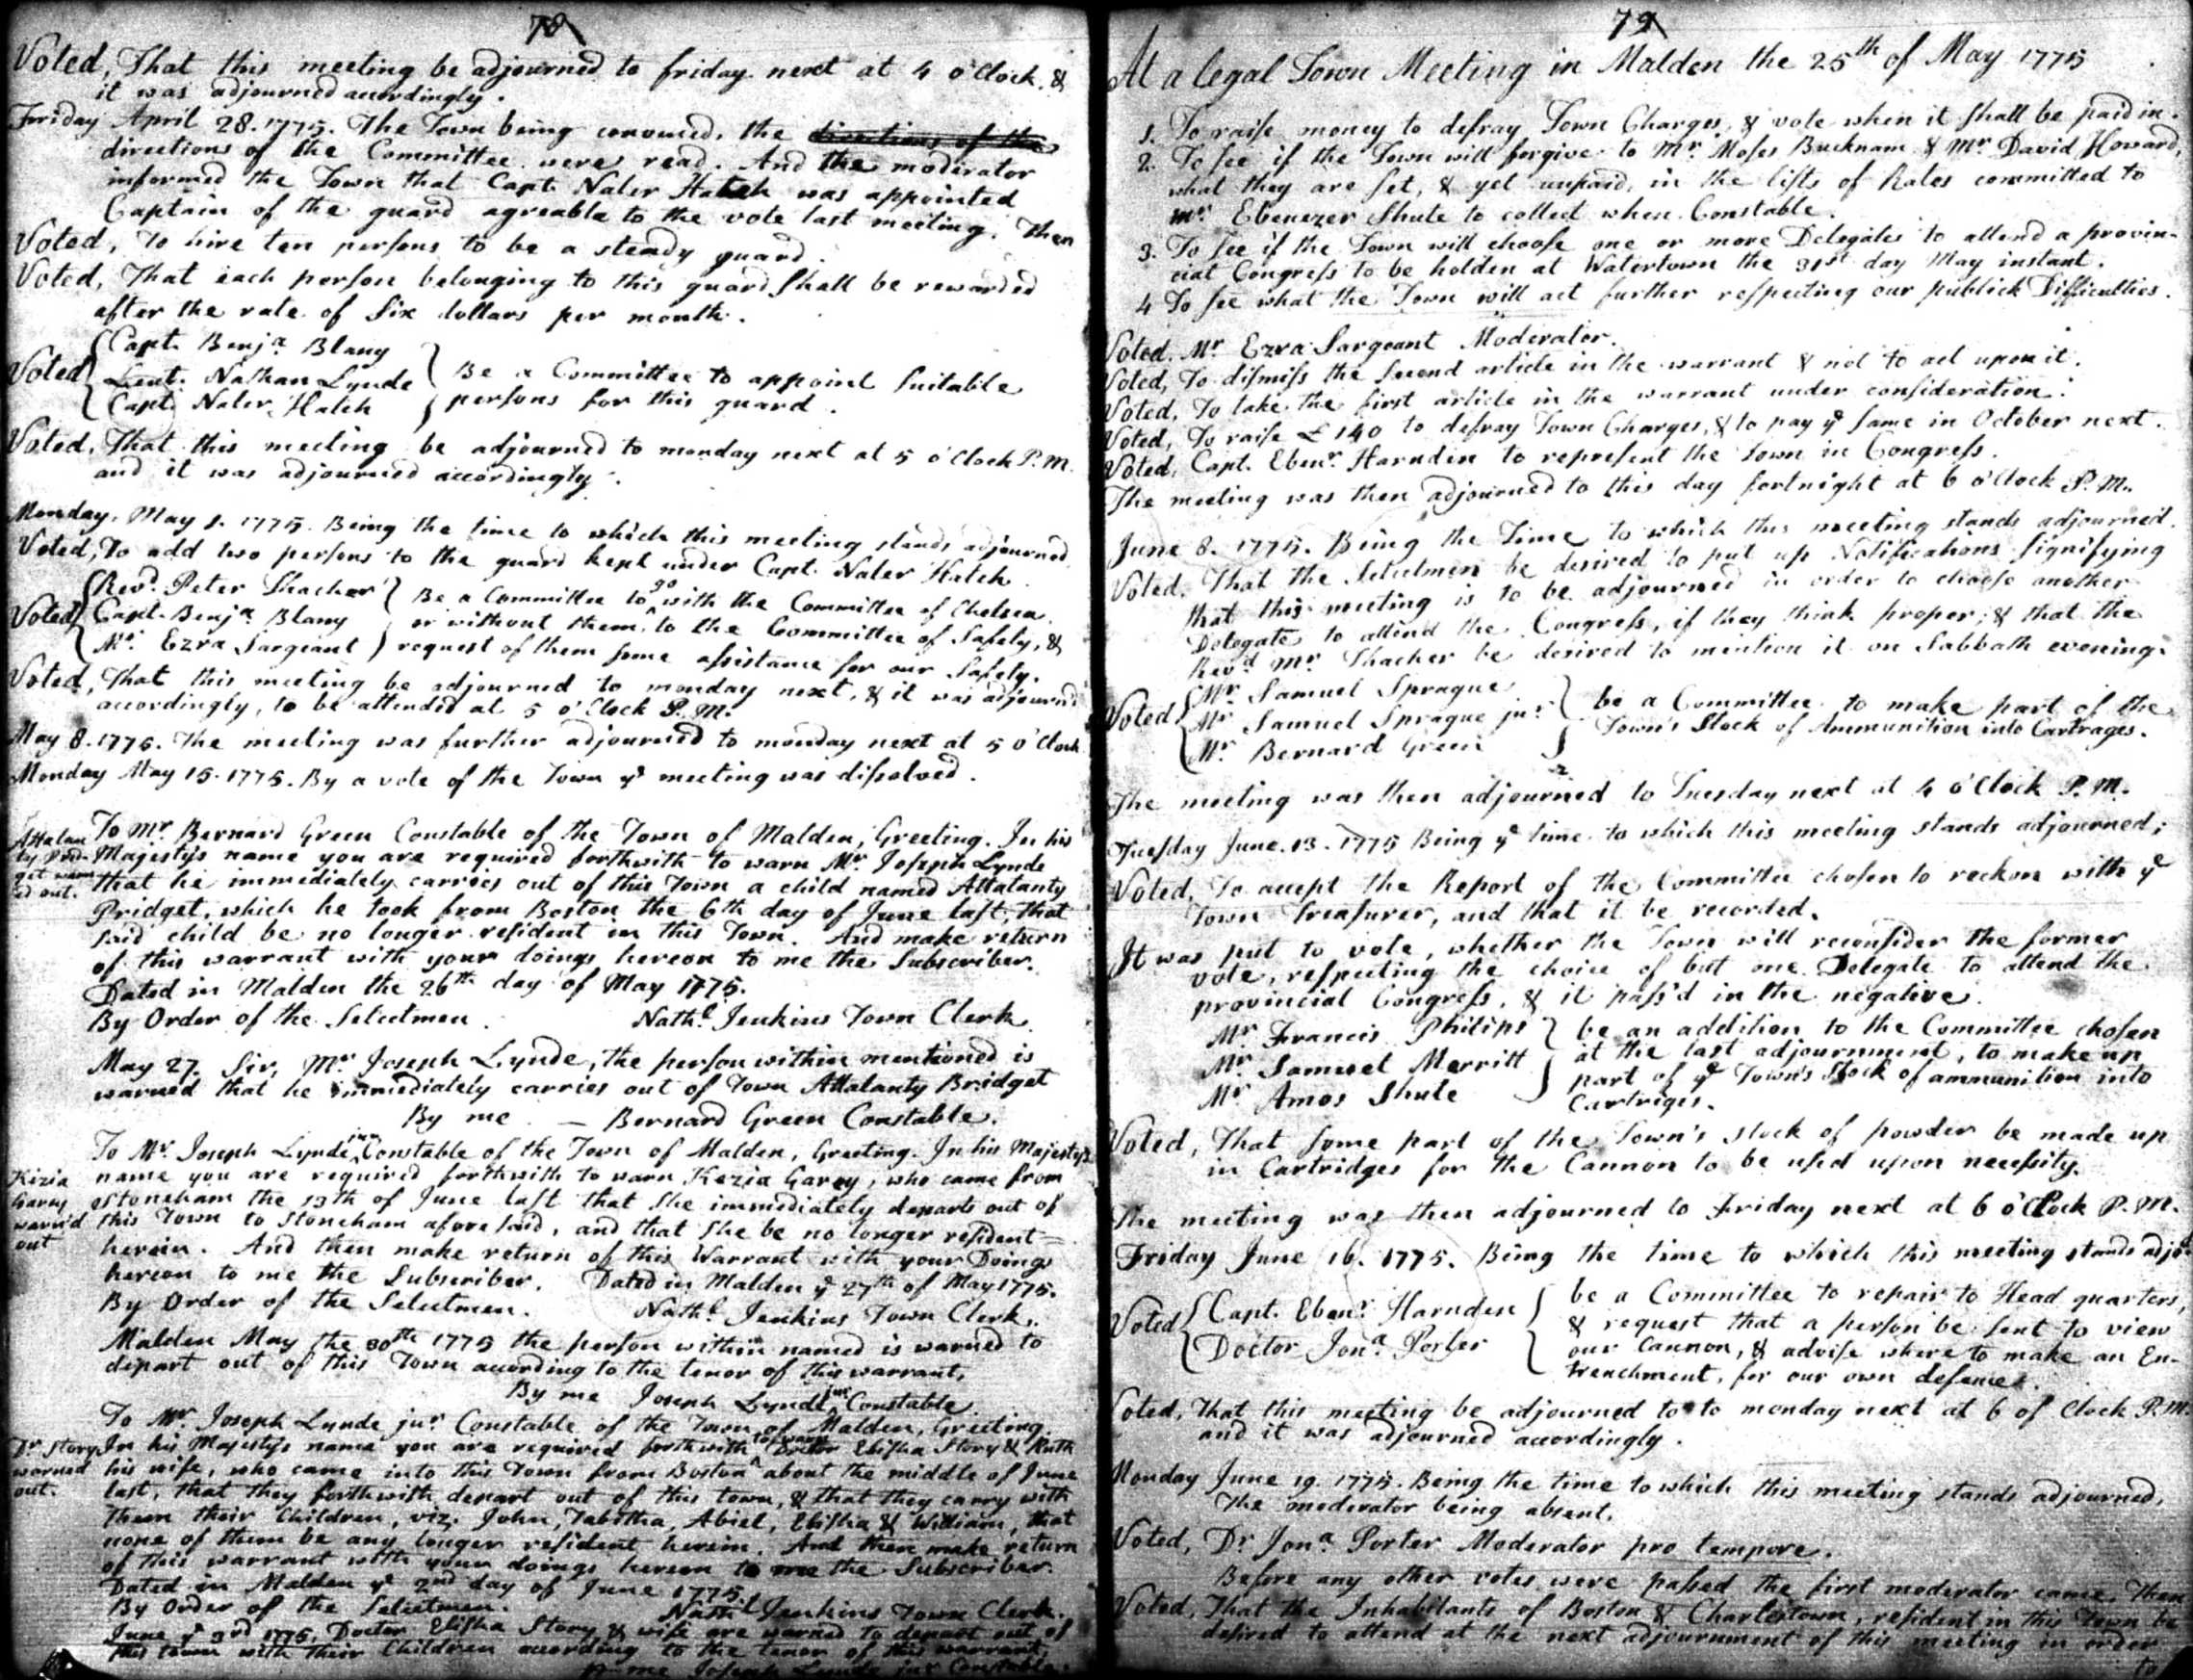 78
Voted, That this meeting be adjourned to friday next at 4 o'Clock. &
it was adjourned accordingly.
Friday April 28. 1775. The Town being convened, the directions of the
directions of the Committee were read. And the moderator
informed the Town that Capt. Naler Hatch was appointed
Captain of the guard agreable to the vote last meeting. Then
Voted, To hire ten persons to be a steady guard.
Voted, That each person belonging to this guard shall be rewarded
after the rate of Six dollars per month.
Voted
Capt. Benja. Blany
Lieut. Nathan Lynde
Capt. Naler Hatch
Be a Committee to appoint suitable
persons for this guard.
Voted, That this meeting be adjourned to monday next at 5 o'Clock P.M.
and it was adjourned accordingly.
Monday, May 1. 1775. Being the time to which this meeting stands adjourned
Voted, To add two persons to the guard kept under Capt. Naler Hatch.
Voted
Revd. Peter Thacher
Capt. Benja. Blany
Mr. Ezra Sargeant
Be a Committee to go with the Committee of Chelsea
or without them, to the Committee of Safety, &
request of them some assistance for our Safety.
Voted, That this meeting be adjourned to monday next, & it was adjournd
accordingly, to be attended at 5 o'Clock P.M.
May 8. 1775. The meeting was further adjourned to monday next at 5 o'Clock
Monday May 15. 1775. By a vote of the Town ye meeting was dissolved.
Attalan
ty Prid-
get warn
ed out.
To Mr. Bernard Green Constable of the Town of Malden, Greeting. In his
Majesty's name you are required forthwith to warn Mr. Joseph Lynde
that he immediately carries out of this Town a child named Attalanty
Pridget, which he took from Boston the 6th day of June last, that
said child be no longer resident in this Town. And make return
of this warrant with your doings hereon to me the Subscriber.
Dated in Malden the 26th day of May 1775.
By Order of the Selectmen. Nathl. Jenkins Town Clerk.
May 27. Sir, Mr. Joseph Lynde, the person within mentioned is
warned that he immediately carries out of Town Attalanty Bridget
By me — Bernard Green Constable.
Kezia
Garey
warn'd
out
To Mr. Joseph Lynde junr Constable of the Town of Malden, Greeting. In his Majesty's
name you are required forthwith to warn Kezia Garey, who came from
Stoneham the 13th of June last that she immediately departs out of
this Town to Stoneham aforesaid, and that she be no longer resident
herein. And then make return of this Warrant with your Doings
hereon to me the Subscriber. Dated in Malden ye 27th of May 1775.
By Order of the Selectmen. Nathl. Jenkins Town Clerk.
Malden May the 30th 1775 the person within named is warned to
depart out of this Town according to the tenor of this warrant,
By me Joseph Lynde junr Constable
Dr Story
warned
out.
To Mr. Joseph Lynde junr Constable of the Town of Malden, Greeting.
In his Majesty's name you are required forthwith to warn Doctor Elisha Story & Ruth
his wife, who came into this Town from Boston about the middle of June
last, that they forthwith depart out of this town, & that they carry with
them their Children, viz. John, Tabitha, Abiel, Elisha & William, that
none of them be any longer resident herein. And then make return
of this warrant with your doings hereon to me the Subscriber.
Dated in Malden ye 2nd day of June 1775.
By Order of the Selectmen. Nathl Jenkins Town Clerk.
June ye 3rd 1775. Doctor Elisha Story & wife are warned to depart out of
this town with their Children according to the tenor of this warrant.
me Joseph Lynde junr Constable.
79
At a legal Town Meeting in Malden the 25th of May 1775
1. To raise money to defray Town Charges, & vote when it shall be paid in.
2. To see if the Town will forgive to Mr. Moses Bucknam & Mr. David Howard,
what they are set, & yet unpaid, in the lists of Rates committed to
mr. Ebenezer Shute to collect when Constable.
3. To see if the Town will choose one or more Delegates to attend a provin-
cial Congress to be holden at Watertown the 31st day May instant.
4 To see what the Town will act further respecting our publick Difficulties.
Voted. Mr Ezra Sargeant Moderator.
Voted, To dismiss the second article in the warrant & not to act upon it.
Voted, To take the first article in the warrant under consideration.
Voted, To raise £140 to defray Town Charges, & to pay ye same in October next.
Voted, Capt. Ebenr. Harnden to represent the Town in Congress.
The meeting was then adjourned to this day fortnight at 6 o'Clock P.M.
June 8. 1775. Being the Time to which this meeting stands adjourned.
Voted, That the Selectmen be desired to put up Notifications signifying
that this meeting is to be adjourned in order to choose another
Delegate to attend the Congress, if they think proper; & that the
Revd Mr Thacher be desired to mention it on Sabbath evening.
Voted
Mr. Samuel Sprague
Mr. Samuel Sprague junr
Mr. Bernard Green
be a Committee to make part of the
Town's Stock of Ammunition into Cartrages.
The meeting was then adjourned to Tuesday next at 4 o'Clock P.M.
Tuesday June. 13. 1775 Being ye time to which this meeting stands adjourned;
Voted, To accept the Report of the Committee chosen to reckon with ye
Town Treasurer, and that it be recorded.
It was put to vote, whether the Town will reconsider the former
vote, respecting the choice of but one Delegate to attend the
provincial Congress, & it pass'd in the negative.
Mr. Francis Philips
Mr. Samuel Merritt
Mr Amos Shute
be an addition to the Committee chosen
at the last adjournment, to make up
part of ye Town's Stock of ammunition into
Cartriges.
Voted, That some part of the Town's stock of powder be made up
in Cartridges for the Cannon to be used upon necessity.
The meeting was then adjourned to Friday next at 6 o'Clock P.M.
Friday June 16. 1775. Being the time to which this meeting stands adjd
Voted
Capt. Ebenr. Harnden
Doctor Jona. Porter
be a Committee to repair to Head quarters,
& request that a person be sent to view
our Cannon, & advise where to make an En-
trenchment, for our own defence.
Voted, That this meeting be adjourned to to monday next at 6 of Clock P.M.
and it was adjourned accordingly.
Monday June 19. 1775. Being the time to which this meeting stands adjourned,
The moderator being absent.
Voted, Dr Jona. Porter Moderator pro tempore.
Before any other votes were passed the first moderator came. Then
Voted, That the Inhabitants of Boston & Charlestown, resident in this Town be
desired to attend at the next adjournment of this meeting in order
to